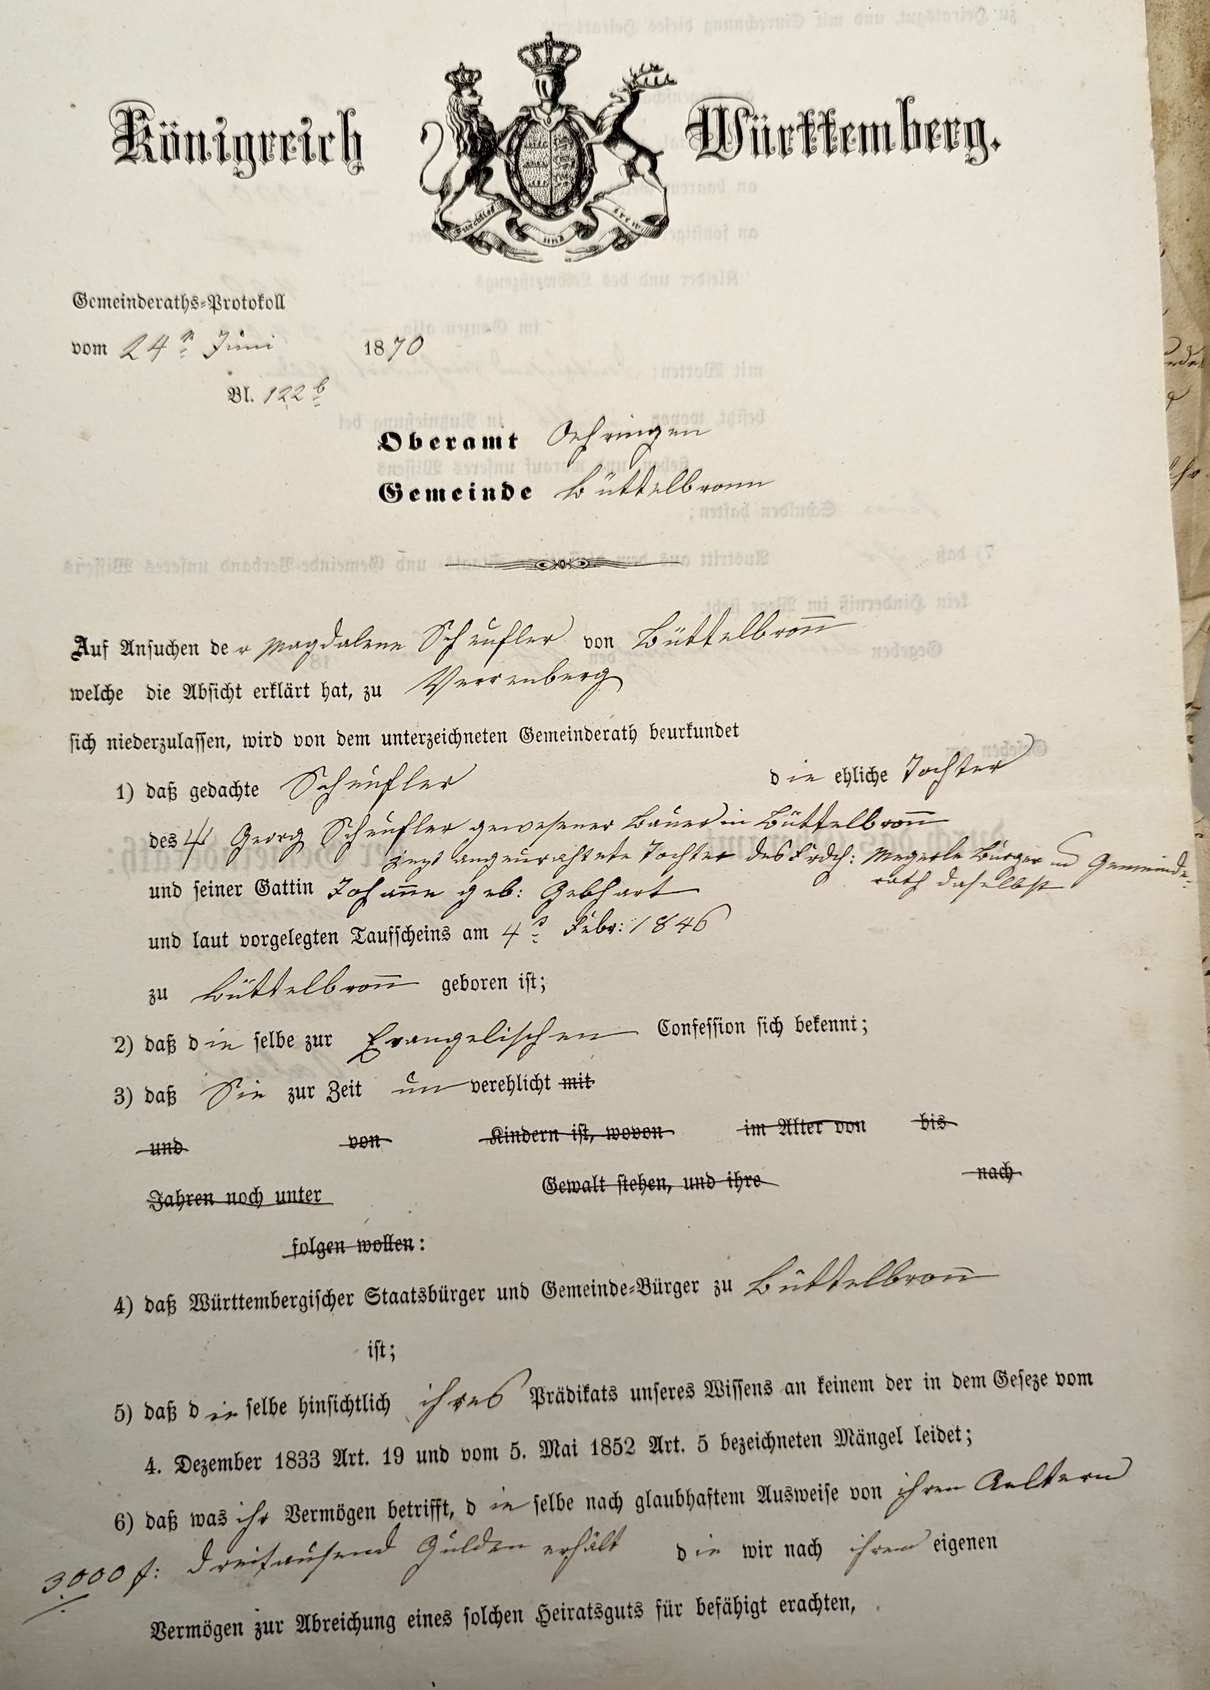 Königreich Württemberg.
Furchtlos und trew
Gemeinderaths-Protokoll
vom 24n Juni 1870
Bl. 122b
Oberamt Oehringen
Gemeinde Büttelbronn
Auf Ansuchen der Magdalene Scheufler von Büttelbron̄
welche die Absicht erklärt hat, zu Verrenberg
sich niederzulassen, wird von dem unterzeichneten Gemeinderath beurkundet
1) daß gedachte Scheufler die ehliche Tochter
des Georg Scheufler gewesener Bauer in Büttelbron̄
jezt angeurathete Tochter des Frdch: Megerle Bürger und Gemeinde-
rath daselbst
und seiner Gattin Johan̄e geb: Gebhart
und laut vorgelegten Taufscheins am 4 Febr: 1846
zu Büttelbron̄ geboren ist;
2) daß die selbe zur Evangelischen Confession sich bekennt;
3) daß Sie zur Zeit un verehlicht mit
und von Kindern ist, wovon im Alter von bis
Jahren noch unter Gewalt stehen, und ihre nach
folgen wollen:
4) daß Württembergischer Staatsbürger und Gemeinde-Bürger zu Büttelbron̄
ist;
5) daß die selbe hinsichtlich ihres Prädikats unseres Wissens an keinem der in dem Geseze vom
4. Dezember 1833 Art. 19 und vom 5. Mai 1852 Art. 5 bezeichneten Mängel leidet;
6) daß was ihr Vermögen betrifft, die selbe nach glaubhaftem Ausweise von ihren Aeltern
3000 f: dreitausend Gulden erhält die wir nach ihrem eigenen
Vermögen zur Abreichung eines solchen Heiratsguts für befähigt erachten,